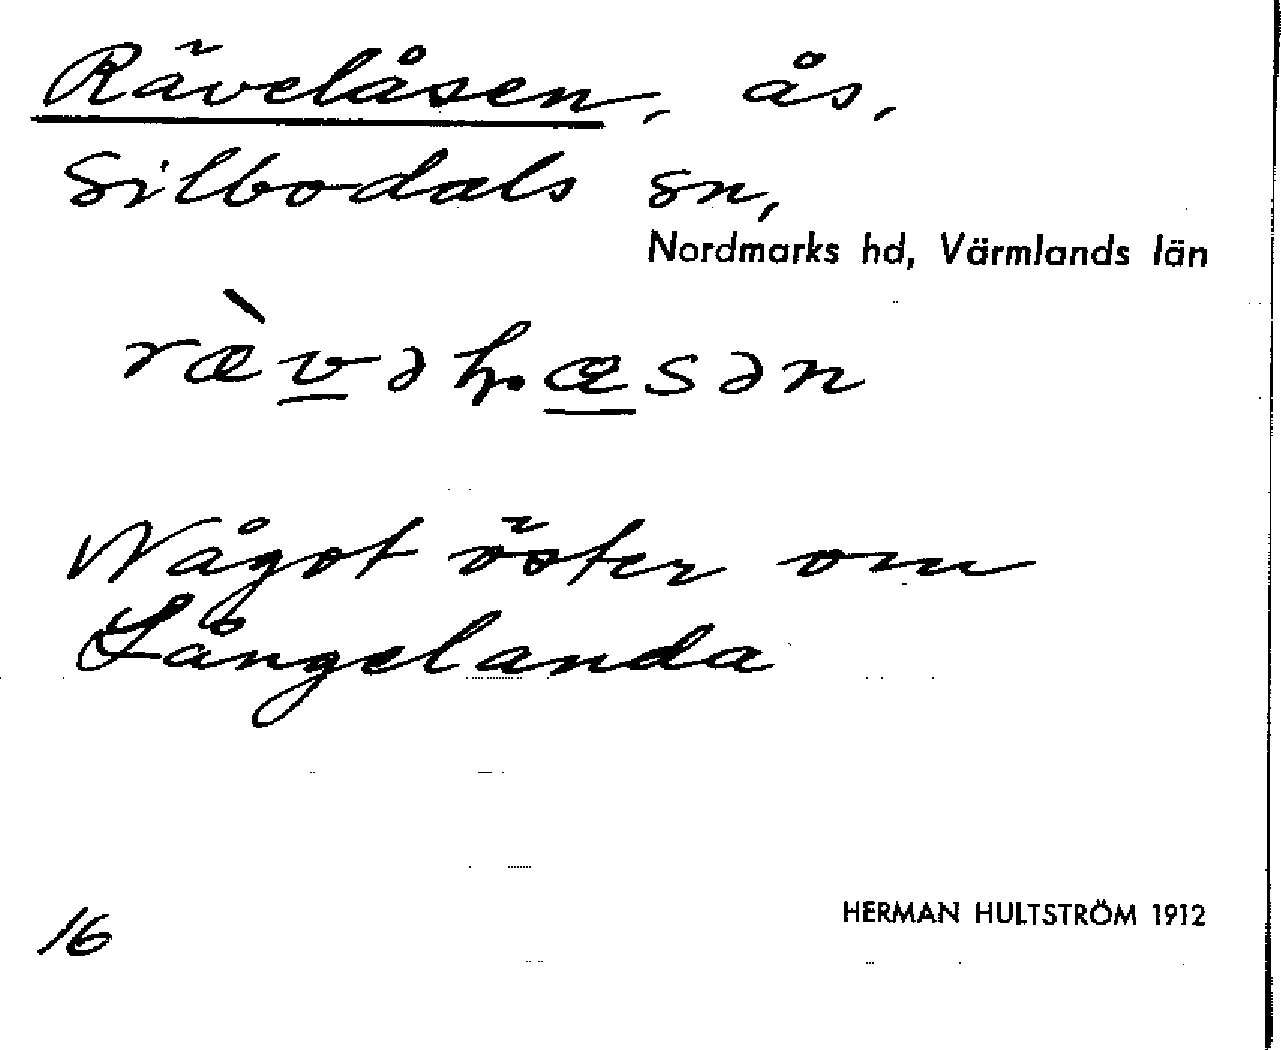 Rävelåsen, ås,
Silbodals sn,
Nordmarks hd, Värmlands län
Något öster om
Långelanda
16
HERMAN HULTSTRÖM 1912